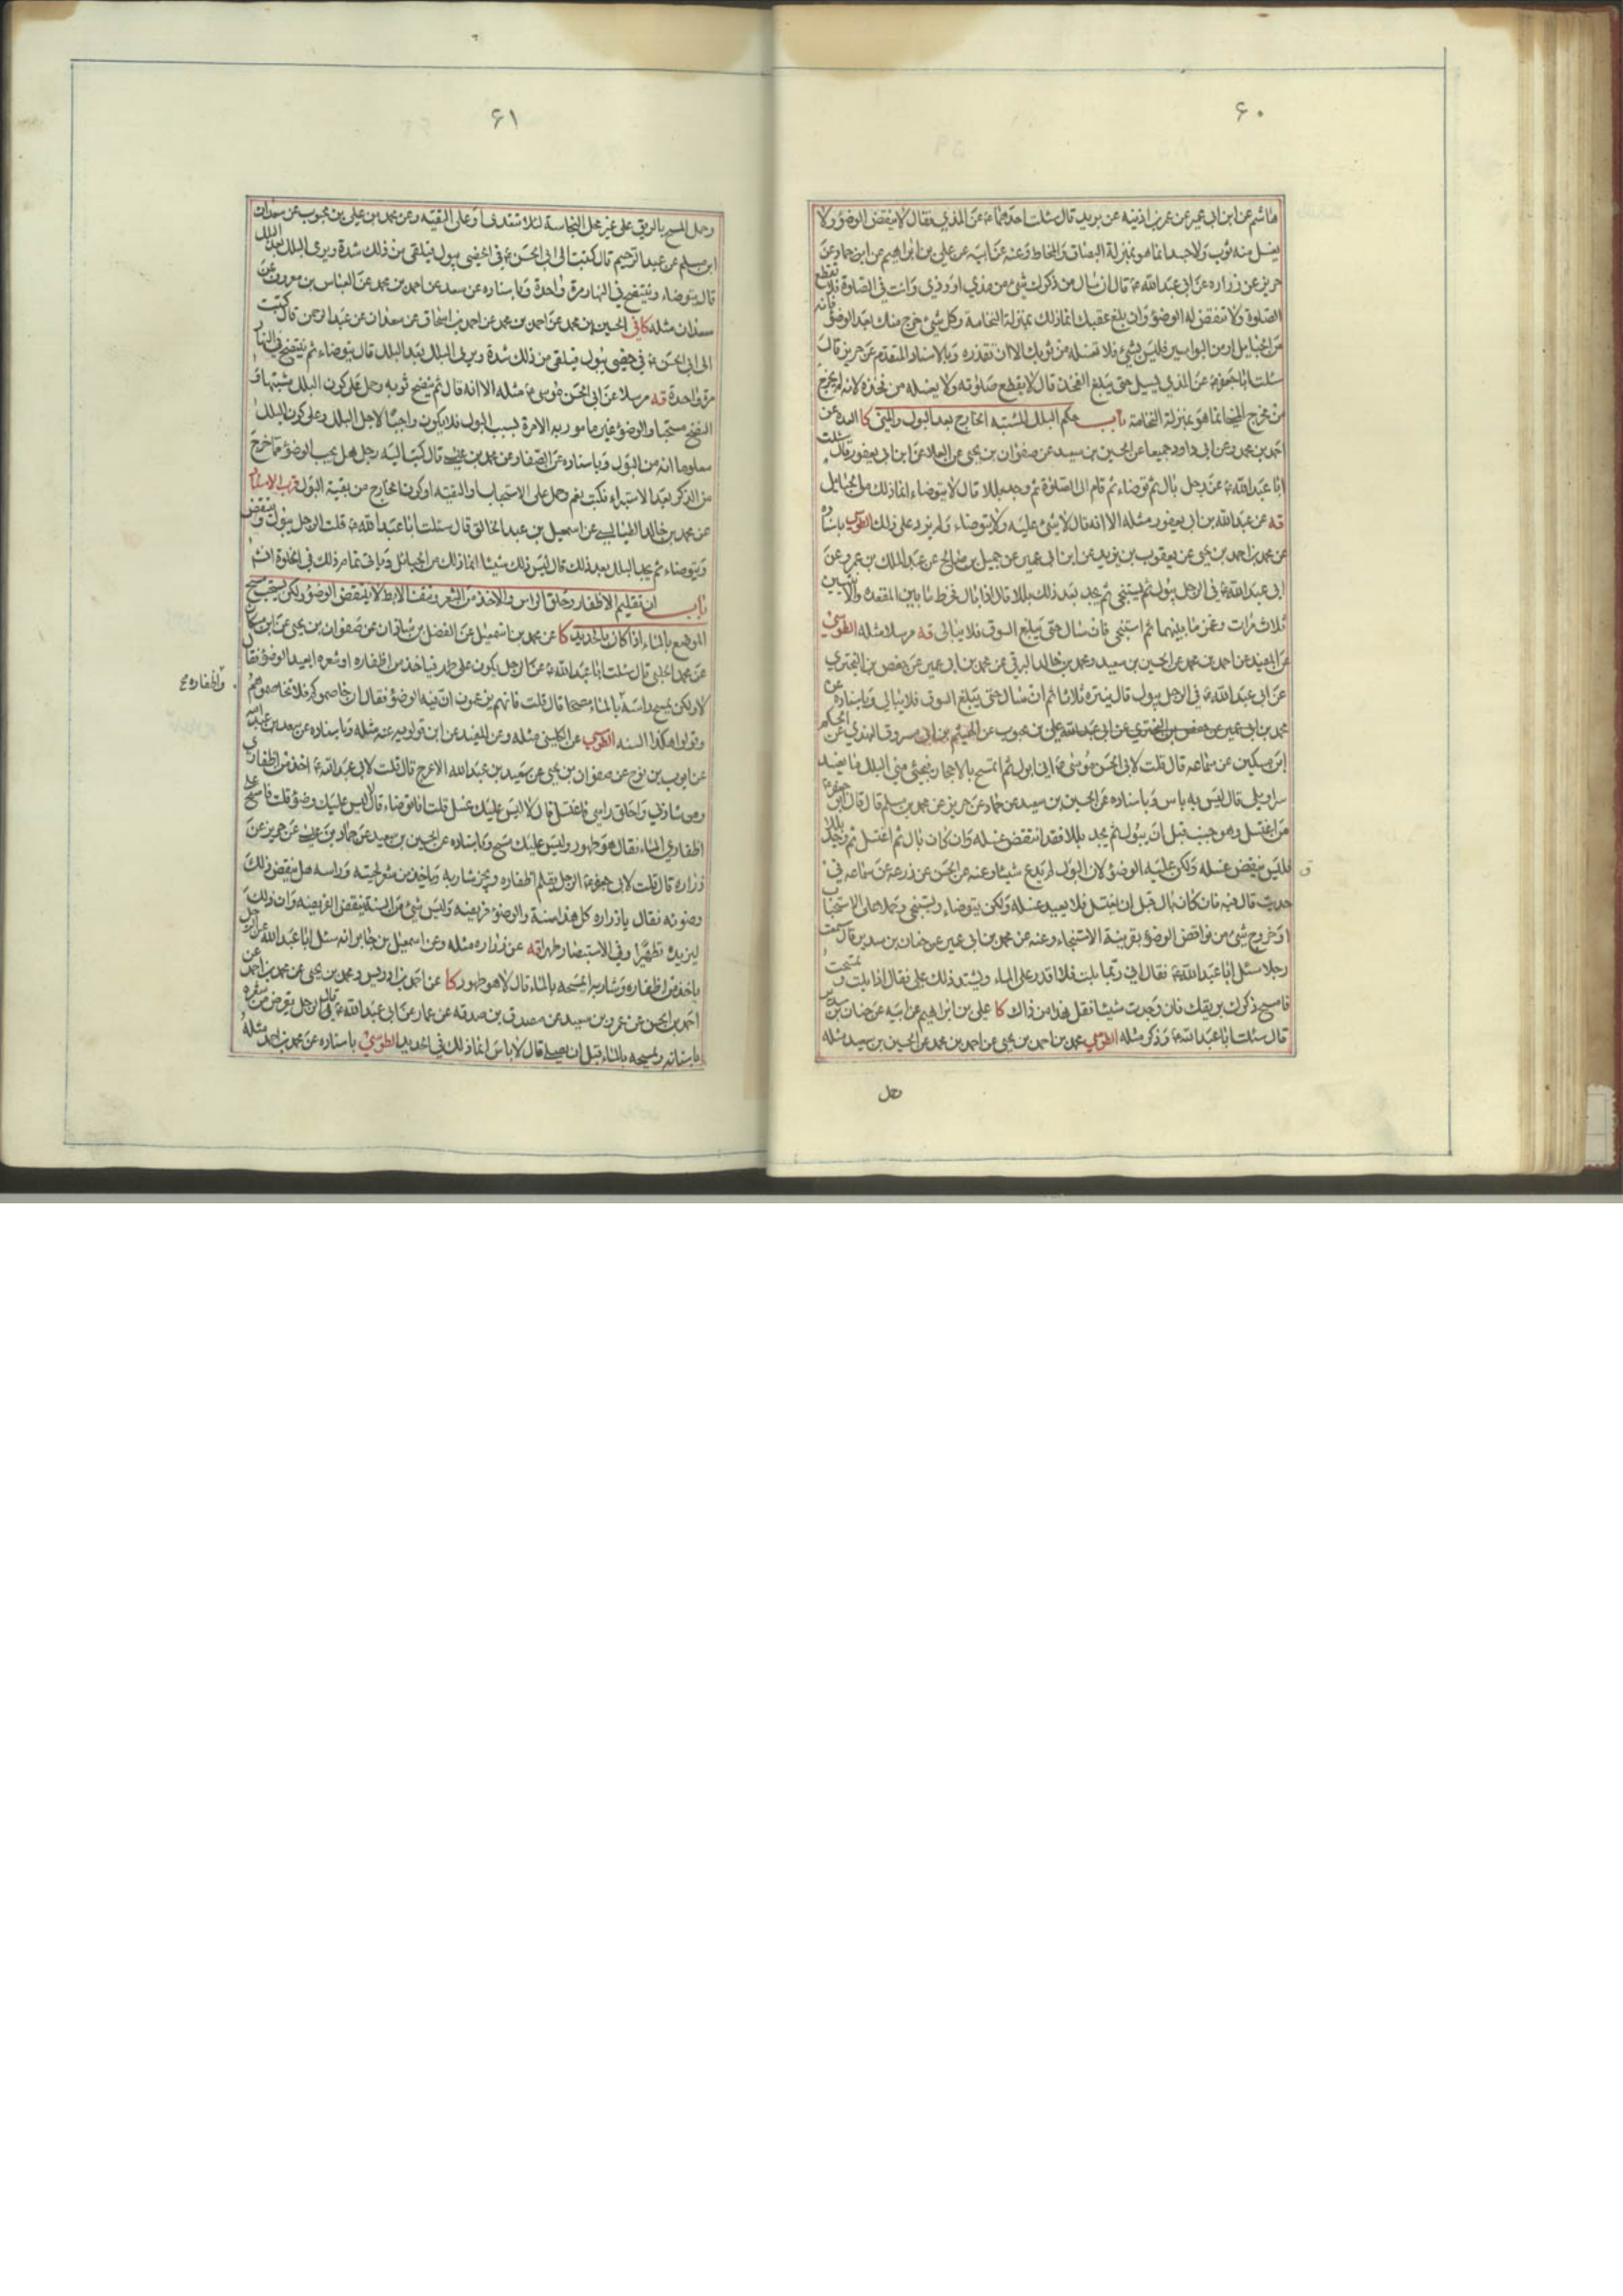 ۶۰
هاشم عن ابن ابي عمير عن عمر بن اذينه عن بريد قال سئلت احدهما ع عن المذي فقال لا ينقض الوضوء ولا
يغسل منه ثوب ولا جسد انما هو بمنزلة البصاق والمخاط وعنه عن ابيه عن علي بن ابراهيم عن ابن حماد عن
حريز عن زراره عن ابي عبد الله ع قال ان سال من ذكرك شئ من مذي او وذي وانت في الصلوة فلا تقطع
الصلوة ولا تنقض له الوضوء وان بلغ عقبك انما ذلك بمنزلة النخامة وكل شئ خرج منك بعد الوضوء فانه
من الحبايل او من البواسير فليس بشئ فلا تغسله من ثوبك الا ان تقذره وبالاسناد المتقدم عن حريز قال
سئلت ابا جعفر ع عن المذي يسيل حتى يبلغ الفخذ قال لا يقطع صلوته ولا يغسله من فخذه لانه لم يخرج
من مخرج المني انما هو بمنزلة النخامة باب حكم البلل المشتبه الخارج بعد البول والمني كا العدة عن
احمد بن محمد وعن ابي داود جميعا عن الحسين بن سعيد عن صفوان بن يحيى عن العلاء عن ابن ابي يعفور قال سئلت
ابا عبد الله ع عن رجل بال ثم توضاء ثم قام الى الصلوة ثم وجد بللا قال لا يتوضاء انما ذلك من الحبايل
قه عن عبد الله بن ابي يعفور مثله الا انه قال لا شئ عليه ولا يتوضاء ولم يزد على ذلك الطوسي باسناده
عن محمد بن احمد بن يحيى عن يعقوب بن يزيد عن ابن ابي عمير عن جميل بن صالح عن عبد الملك بن عمرو عن
ابي عبد الله ع في الرجل يبول ثم يستنجي ثم يجد بعد ذلك بللا قال اذا بال فخرط ما بين المقعدة والانثيين
ثلاث مرات وغمز ما بينهما ثم استنجى فان سال حتى يبلغ السوق فلا يبالي قه مرسلا مثله الطوسي
عن المفيد عن احمد بن محمد عن الحسين بن سعيد ومحمد بن خالد البرقي عن محمد بن ابي عمير عن حفص بن البختري
عن ابي عبد الله ع في الرجل يبول قال ينتره ثلاثا ثم ان سال حتى يبلغ السوق فلا يبالي وباسناده عن
محمد بن ابي عمير عن حفص بن البختري عن ابي عبد الله علي بن محبوب عن الهيثم بن ابي مسروق النهدي عن الحكم
ابن مسكين عن سماعه قال قلت لابي الحسن موسى ع اني ابول ثم اتمسح بالاحجار فيجئ مني البلل ما يفسد
سراويلي قال ليس به باس وباسناده عن الحسين بن سعيد عن حماد عن حريز عن محمد بن مسلم قال قال ابو جعفر ع
من اغتسل وهو جنب قبل ان يبول ثم يجد بللا فقد انتقض غسله وان كان بال ثم اغتسل ثم وجد بللا
فليس ينقض غسله ولكن عليه الوضوء لان البول لم يدع شيئا وعنه عن الحسن عن زرعه عن سماعه في
حديث قال فيه فان كان بال قبل ان يغتسل فلا يعيد غسله ولكن يتوضاء ويستنجي وحملا على الاستحباب
او خروج شئ من نواقض الوضوء بقرينة الاستنجاء وعنه عن محمد بن ابي عمير عن حنان بن سدير قال سمعت
رجلا سئل ابا عبد الله ع فقال اني ربما بلت فلا اقدر على الماء ويشتد ذلك علي فقال اذا بلت وتمسحت
فامسح ذكرك بريقك فان وجدت شيئا فقل هذا من ذاك كا علي بن ابراهيم عن ابيه عن حنان بن سدير
قال سئلت ابا عبد الله ع وذكر مثله الطوسي محمد بن احمد بن يحيى عن احمد بن محمد عن الحسين بن سعيد مثله
۶۱
وحمل المسح بالريق على غير محل النجاسة لئلا تتعدى او على التقيه وعن محمد بن علي بن محبوب عن سعدان
ابن مسلم عن عبد الرحيم قال كتبت الى ابي الحسن ع في الخصي يبول فيلقى من ذلك شدة ويرى البلل بعد البلل
قال يتوضاء وينتضح في النهار مرة واحدة وباسناده عن سعد عن احمد بن محمد عن العباس بن معروف عن
سعدان مثله كافي الحسين بن محمد عن احمد بن محمد عن احمد بن اسحاق عن سعدان عن عبد الرحمن قال كتبت
الى ابي الحسن ع في خصي يبول فيلقى من ذلك شدة ويرى البلل بعد البلل قال يتوضاء ثم ينتضح في النهار
مرة واحدة قه مرسلا عن ابي الحسن موسى ع مثله الا انه قال ثم ينضح ثوبه وحمل على كون البلل مشتبها و
النضح مستحبا والوضوء غير مامور به الا مرة بسبب البول فلا يكون واجبا لاجل البلل وعلى كون البلل
معلوما انه من البول وباسناده عن الصفار عن محمد بن عيسى قال كتب اليه رجل هل يجب الوضوء مما خرج
من الذكر بعد الاستبراء فكتب نعم وحمل على الاستحباب او التقيه او كون الخارج من بقية البول قرب الاسناد
عن محمد بن خالد الطيالسي عن اسمعيل بن عبد الخالق قال سئلت ابا عبد الله ع قلت الرجل يبول وينتفض
ويتوضاء ثم يجد البلل بعد ذلك قال ليس ذلك شيئا انما ذلك من الحبائل وياتي تمام ذلك في الخلوة انش
باب ان تقليم الاظفار وحلق الراس والاخذ من الشعر ونتف الابط لا ينقض الوضوء ولكن يستحب مسح
الموضع بالماء اذا كان بالحديد كا عن محمد بن اسمعيل عن الفضل بن شاذان عن صفوان بن يحيى عن ابن مسكان
عن محمد الحلبي قال سئلت ابا عبد الله ع عن الرجل يكون على طهر فياخذ من اظفاره او شعره ايعيد الوضوء فقال
لا ولكن يمسح راسه بالماء مسحا قال قلت فانهم يزعمون ان فيه الوضوء فقال ان خاصموكم فلا تخاصموهم
واظفاره ع
وقولوا هكذا السنه الطوسي عن الكليني مثله وعن المفيد عن ابن قولويه عنه مثله وباسناده عن سعد بن عبد الله
عن ايوب بن نوح عن صفوان بن يحيى عن سعيد بن عبد الله الاعرج قال قلت لابي عبد الله ع اخذ من اظفاري
ومن شاربي واحلق راسي فاغتسل قال لا ليس عليك غسل قلت فاتوضاء قال لا ليس عليك وضوء قلت فامسح على
اظفاري الماء فقال هو طهور وليس عليك مسح وباسناده عن الحسين بن سعيد عن حماد بن عيسى عن حريز عن
زراره قال قلت لابي جعفر ع الرجل يقلم اظفاره ويجز شاربه وياخذ من شعر لحيته وراسه هل ينقض ذلك
وضوئه فقال يا زراره كل هذا سنة والوضوء فريضه وليس شئ من السنة ينقض الفريضه وان ذلك
ليزيده تطهيرا وفي الاستبصار طهرا قه عن زراره مثله وعن اسمعيل بن جابر انه سئل ابا عبد الله عن الرجل
ياخذ من اظفاره وشاربه ايمسحه بالماء قال لا هو طهور كا عن احمد بن ادريس ومحمد بن يحيى عن محمد بن احمد عن
احمد بن الحسن عن عمرو بن سعيد عن مصدق بن صدقه عن عمار عن ابي عبد الله ع قال في الرجل يقرض من شعره
باسنانه ويمسحه بالماء قبل ان يصلي قال لا باس انما ذلك في الحديد الطوسي باسناده عن محمد بن احمد مثله